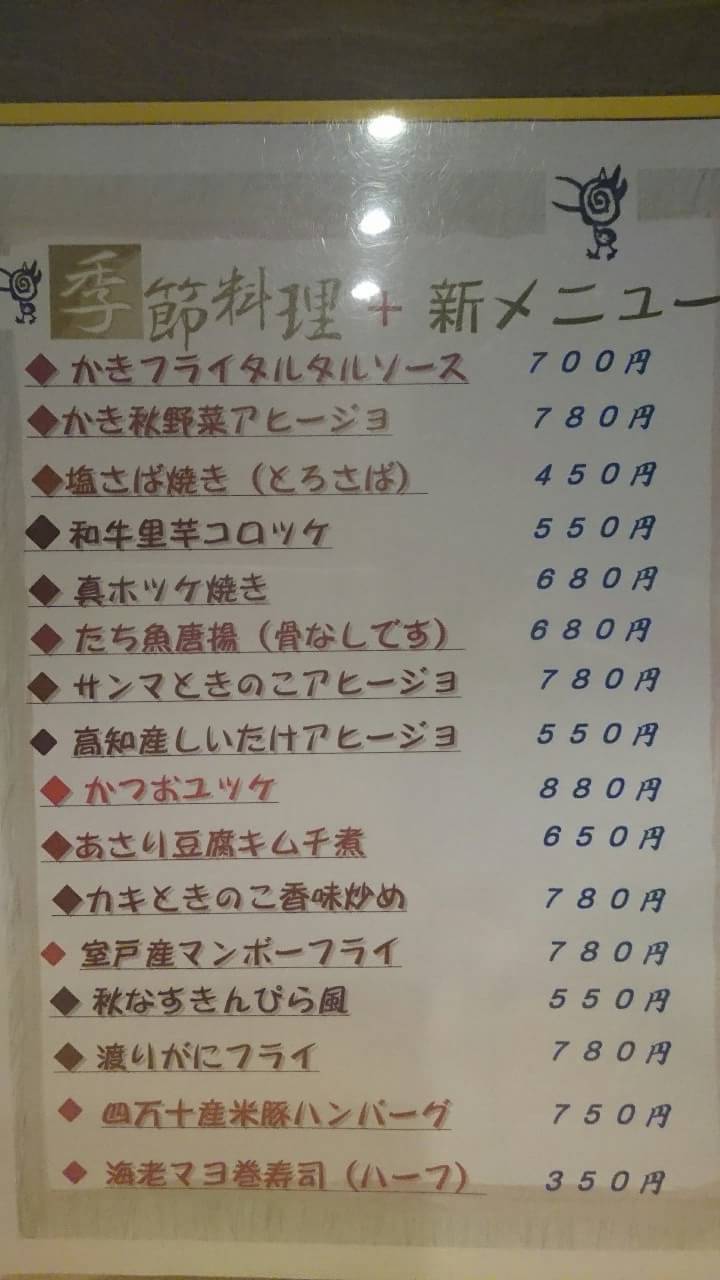 季節料理+新メニュー
◆かきフライタルタルソース 700円
◆かき秋野菜アヒージョ 780円
◆塩さば焼き(とろさば) 450円
◆和牛里芋コロッケ 550円
◆真ホッケ焼き 680円
◆たち魚唐揚(骨なしです) 680円
◆サンマときのこアヒージョ 780円
◆高知産しいたけアヒージョ 550円
◆かつおユッケ 880円
◆あさり豆腐キムチ煮 650円
◆カキときのこ香味炒め 780円
◆室戸産マンボーフライ 780円
◆秋なすきんぴら風 550円
◆渡りがにフライ 780円
◆四万十産米豚ハンバーグ 750円
◆海老マヨ巻寿司(ハーフ) 350円